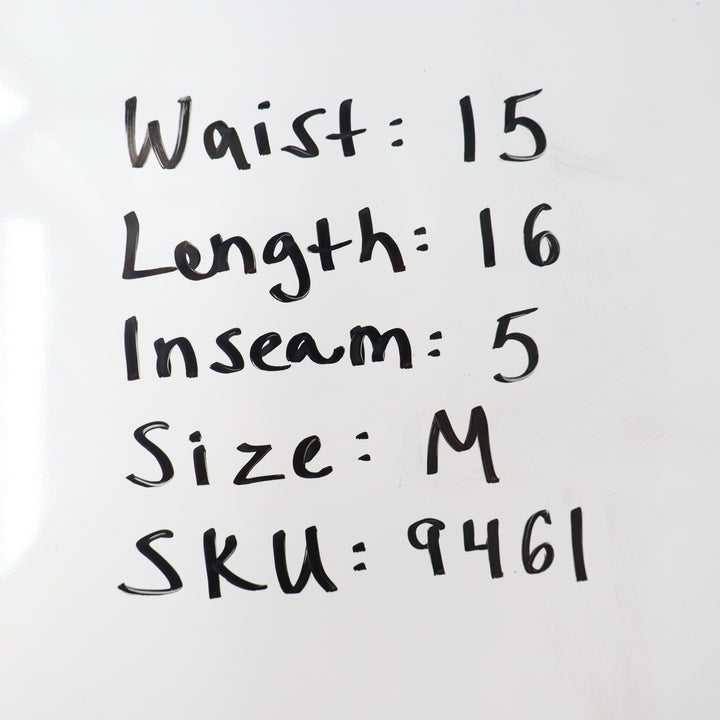 Waist: 15
Length: 16
Inseam: 5
Size: M
SKU: 9461